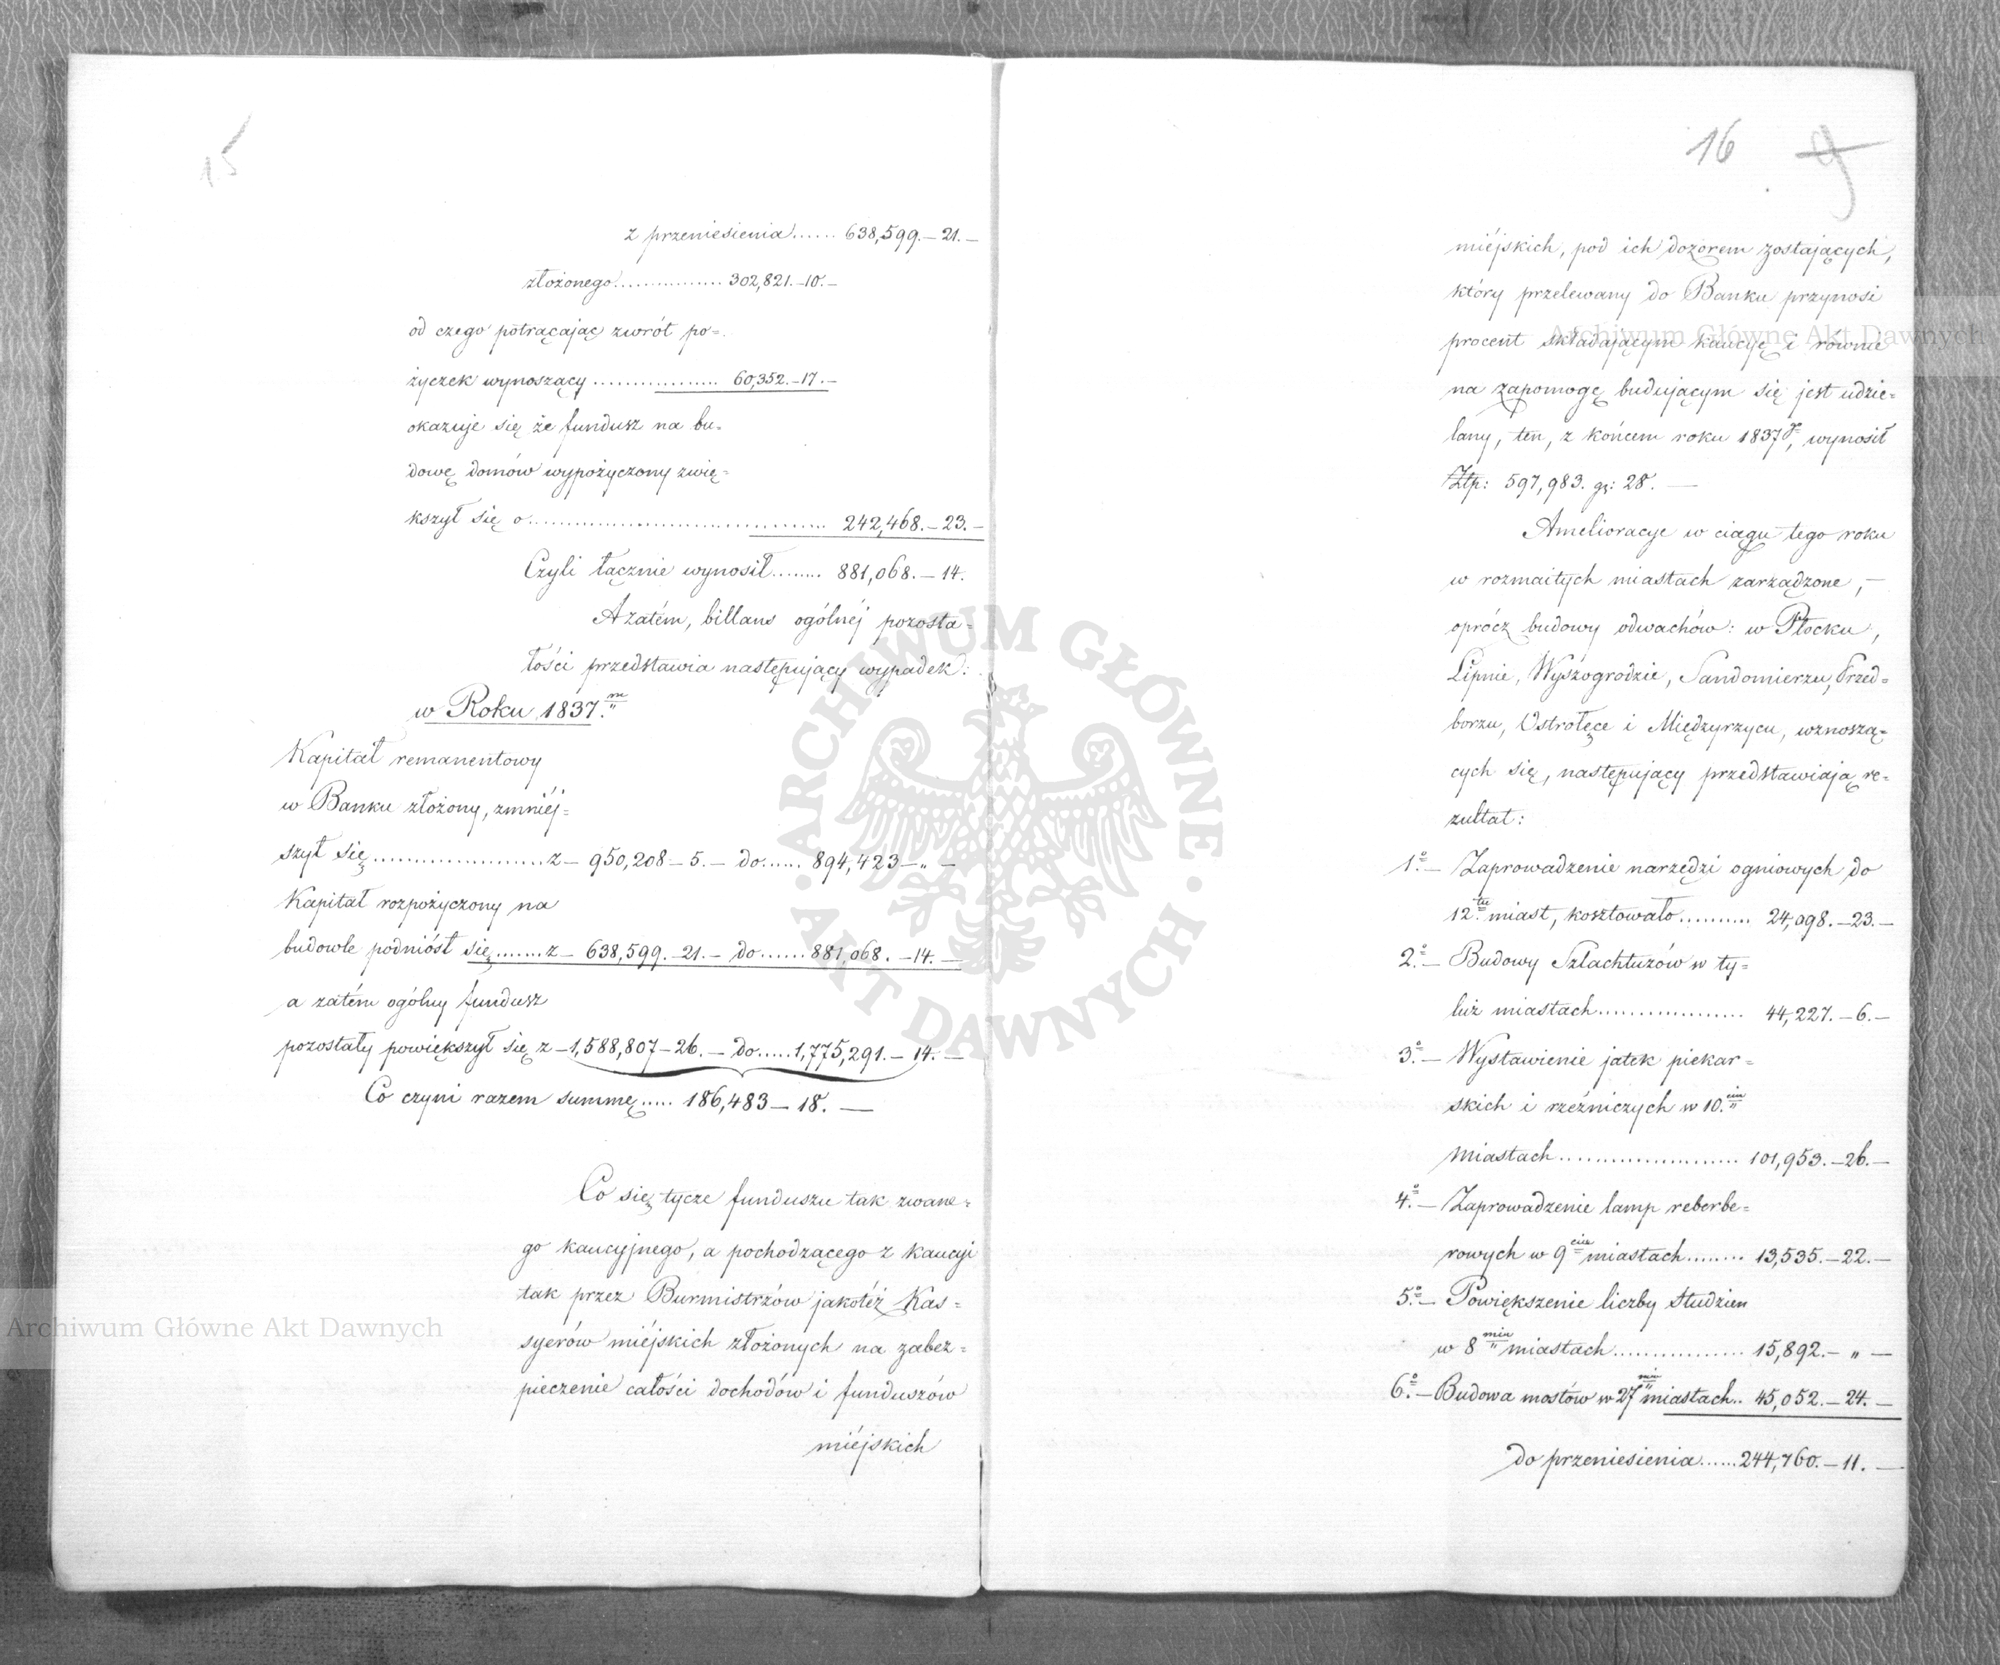 15
z przeniesienia...... 638,599.—21.—
złożonego............... 302,821.—10.—
od czego potrącając zwrót po=
życzek wynoszący.................. 60,352.—17.—
okazuje się że fundusz na bu=
dowę domów wypożyczony zwię=
kszył się o.................................... 242,468.—23.—
Czyli łącznie wynosił....... 881,068.—14.
A zatém, billans ogólnéj pozosta=
łości przedstawia następujący wypadek:
w Roku 1837.m
Kapitał remanentowy
w Banku złożony, zmniéj=
szył się.....................z— 950,208—5.— do...... 894,423—„—
Kapitał rozpożyczony na
budowle podniósł się.......z— 638,599.—21.— do...... 881,068.—14.—
a zatém ogólny fundusz
pozostały powiększył się z—1,588,807—26.—do.....1,775,291.—14.—
Co czyni razem summę..... 186,483—18.—
Co się tycze funduszu tak zwane=
go kaucyjnego, a pochodzącego z kaucyi
tak przez Burmistrzów jakotéż Kas=
syerów miéjskich złożonych na zabez=
pieczenie całości dochodów i funduszów
miéjskich
16 9
miéjskich, pod ich dozorem zostających,
który przelewany do Banku przynosi
procent składającym kaucyę i równie
na zapomogę budującym się jest udzie=
lany, ten, z końcem roku 1837 r., wynosił
Złp: 597,983. gr: 28.—
Amelioracye w ciągu tego roku
w rozmaitych miastach zarządzone,—
oprócz budowy odwachów: w Płocku,
Lipnie, Wyszogrodzie, Sandomierzu, Przed=
borzu, Ostrołęce i Międzyrzycu, wznoszą=
cych się, następujący przedstawiają re=
zultat:
1.o— Zaprowadzenie narzędzi ogniowych do
12.tu miast, kosztowało.......... 24,098.—23.—
2.o— Budowy Szlachtuzów w ty=
luż miastach.................. 44,227.—6.—
3.o— Wystawienie jatek piekar=
skich i rzéźniczych w 10.ciu
miastach....................... 101,953.—26.—
4.o— Zaprowadzenie lamp reberbe=
rowych w 9ciu miastach........ 13,535.—22.—
5.o— Powiększenie liczby studzien
w 8miu miastach................. 15,892.—„—
6.o— Budowa mostów w 27miu miastach.. 45,052.—24.—
do przeniesienia......244,760.—11.—
Archiwum Główne Akt Dawnych
Archiwum Główne Akt Dawnych
ARCHIWUM GŁÓWNE · AKT DAWNYCH ·